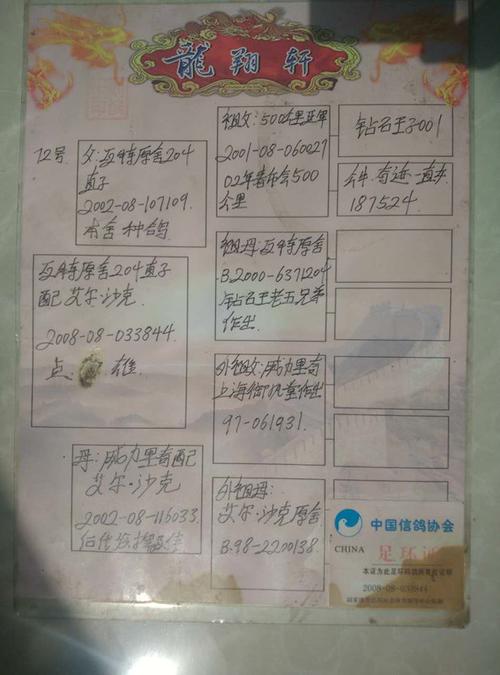 龍翔轩
12号
父:瓦特原舍204
直子
2002-08-107109
本舍种鸽
祖父:500公里亚军
2001-08-060027
02年
会500
公里
钻石王子001
奇迹一直子
187524
瓦特原舍204直子
配艾尔·沙克
2008-08-033844
点 雄
祖母:瓦特原舍
B.2000-6371204
钻石王老五兄弟
作出
外祖父:威力里奇
上海
作出
97-061931
母:威力里奇配
艾尔·沙克
2002-08-116033
外祖母:
艾尔·沙克原舍
B.98-2200138
中国信鸽协会
CHINA 足环证
本证为此足环码鸽所有权证明
2008-08-033844